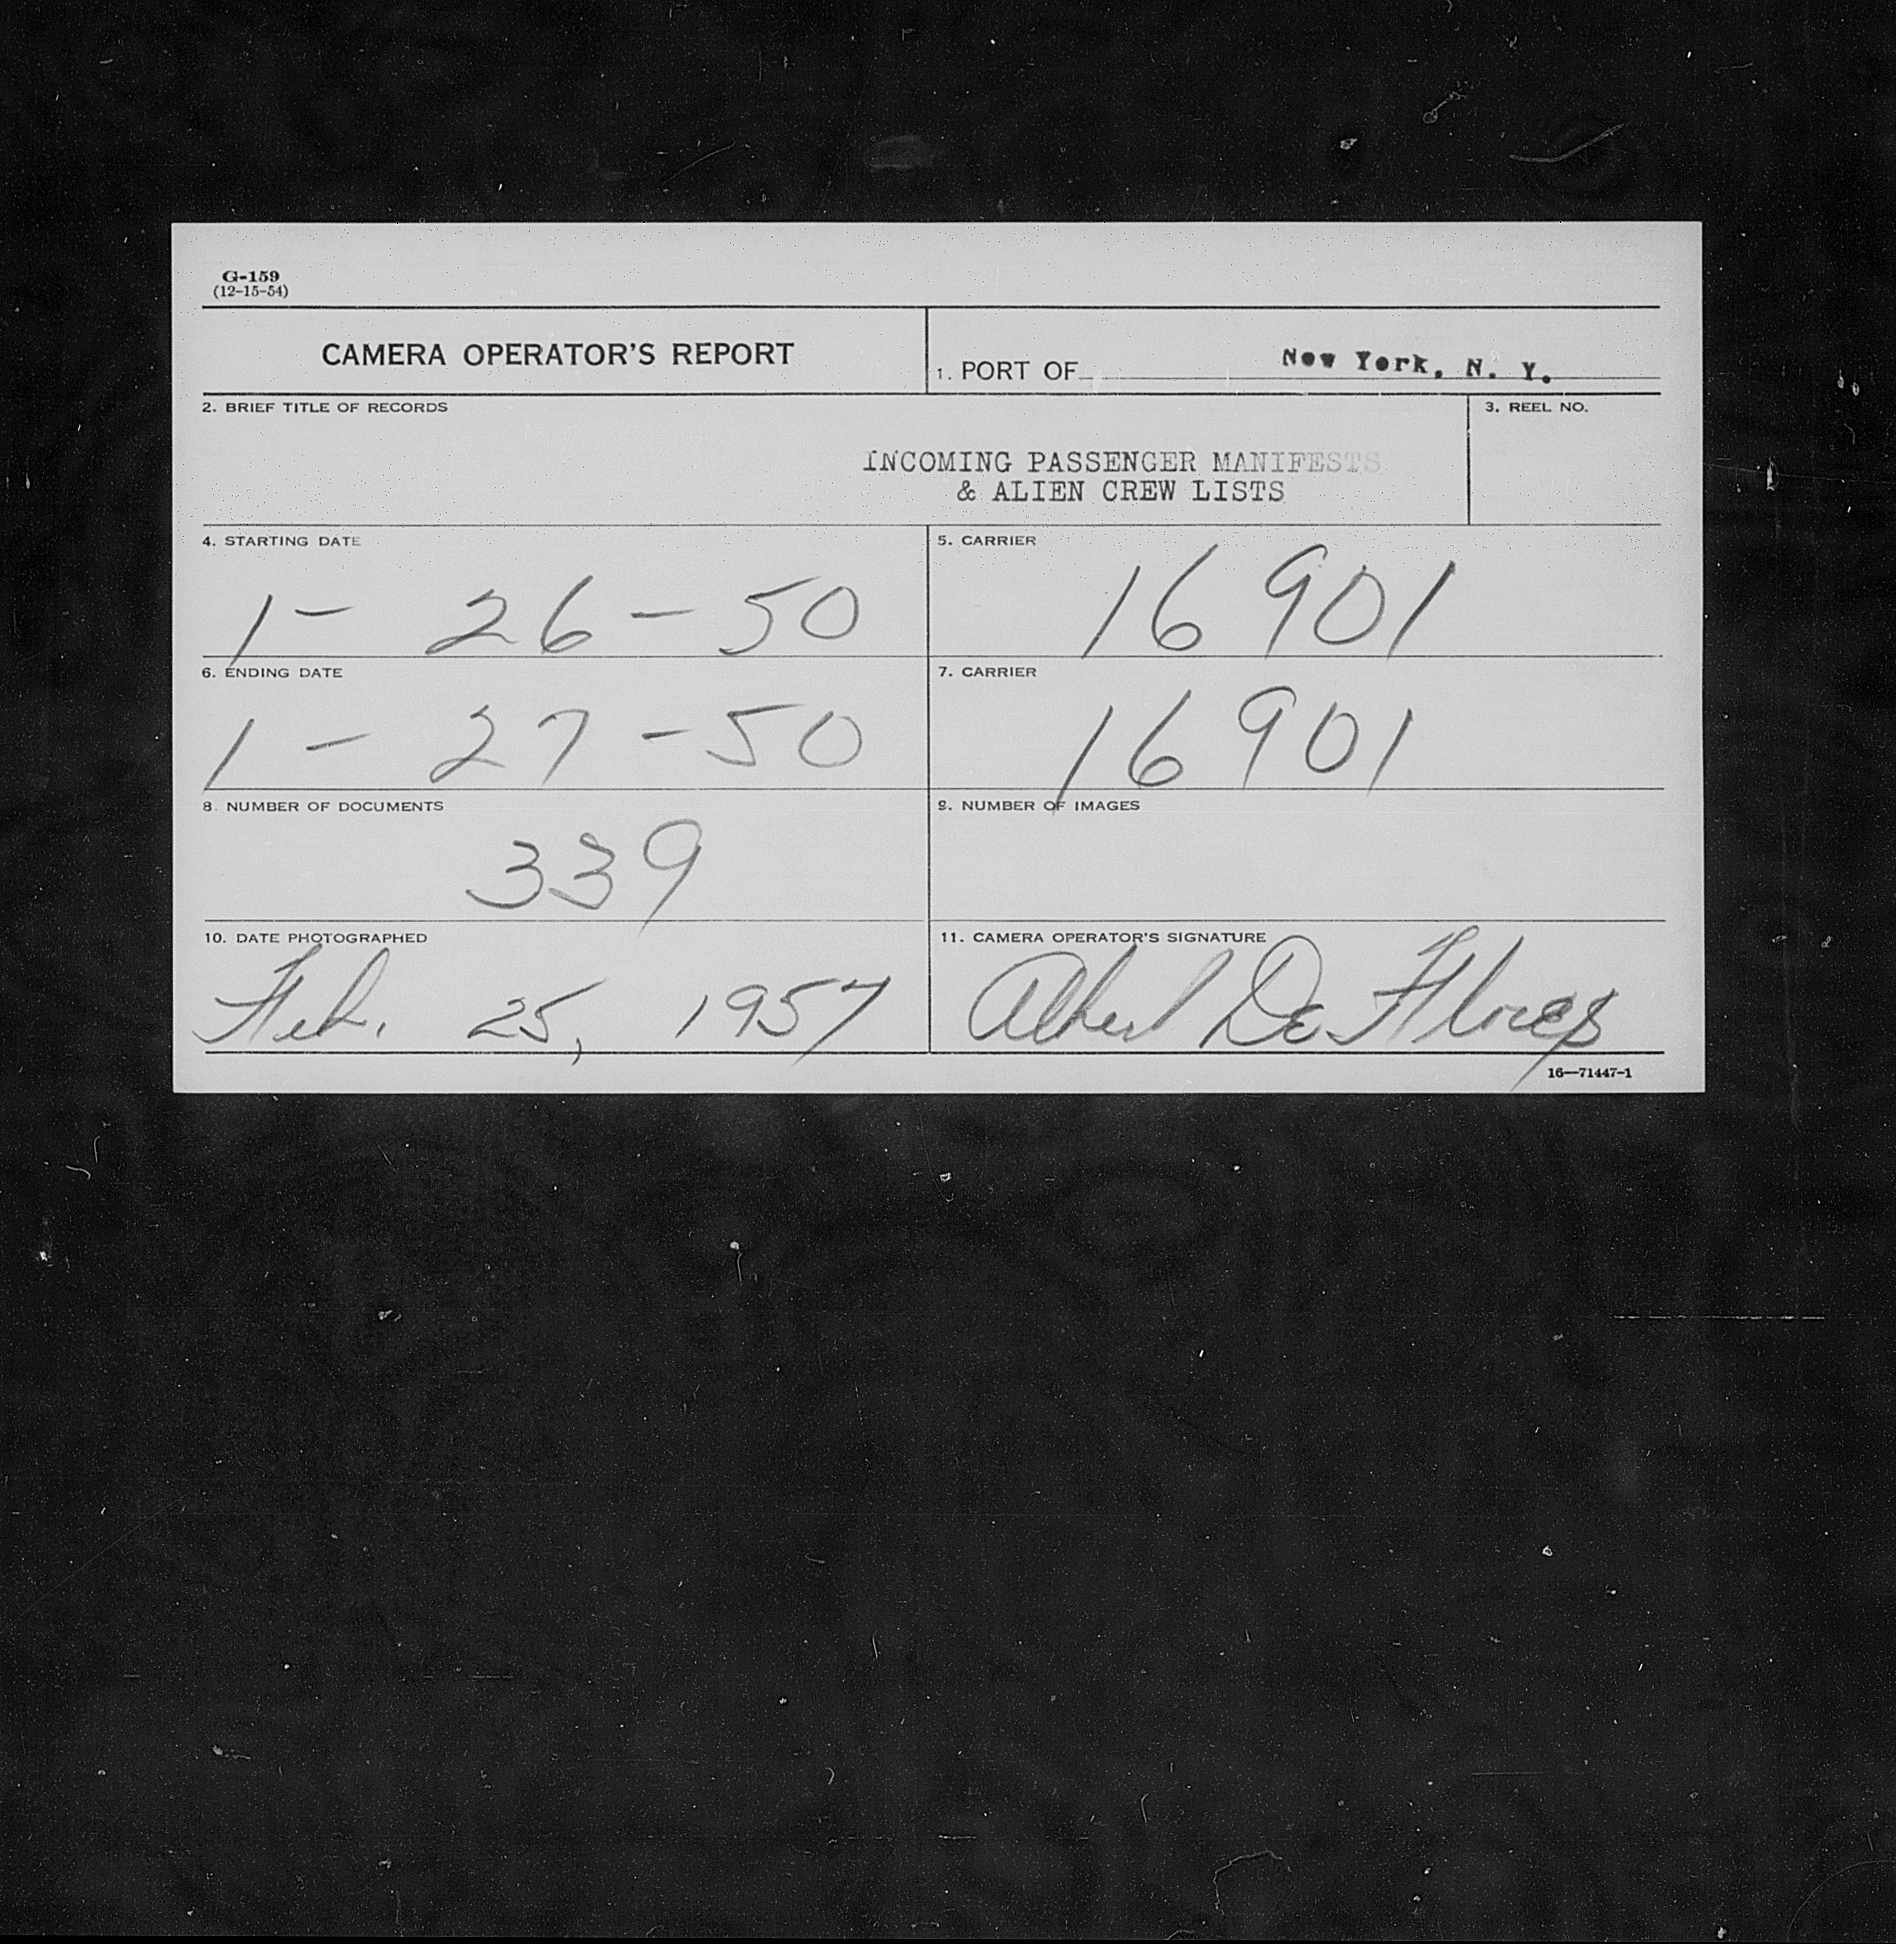 G-159
(12-15-54)
CAMERA OPERATOR'S REPORT
1. PORT OF New York, N. Y.
2. BRIEF TITLE OF RECORDS
3. REEL NO.
INCOMING PASSENGER MANIFESTS
& ALIEN CREW LISTS
4. STARTING DATE
1 - 26 - 50
5. CARRIER
16901
6. ENDING DATE
1 - 27 - 50
7. CARRIER
16901
8. NUMBER OF DOCUMENTS
339
9. NUMBER OF IMAGES
10. DATE PHOTOGRAPHED
Feb. 25, 1957
11. CAMERA OPERATOR'S SIGNATURE
Albert De Flores
16—71447-1